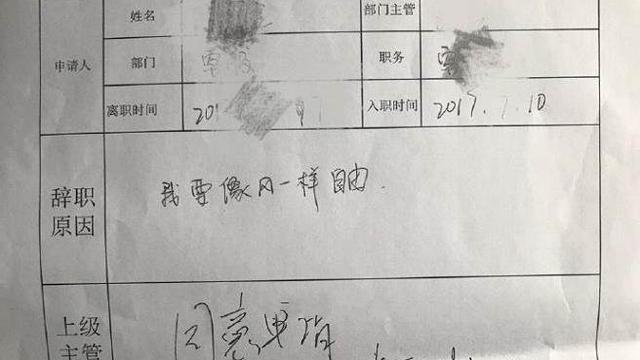 姓名 部门主管
申请人 部门 职务
离职时间 201 入职时间 2017.7.10
辞职原因 我要像风一样自由.
上级主管 同意